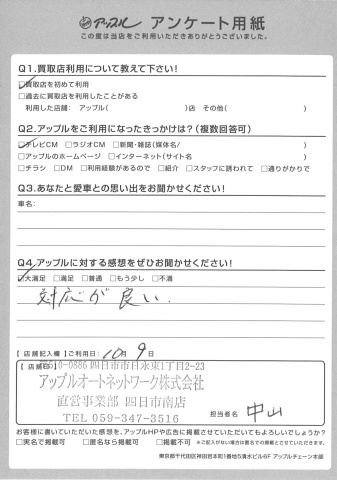 アップル アンケート用紙
この度は当店をご利用いただきありがとうございました。
Q1.買取店利用について教えて下さい!
□買取店を初めて利用
□過去に買取店を利用したことがある
利用した店舗: アップル( )店 その他( )
Q2.アップルをご利用になったきっかけは?(複数回答可)
□テレビCM □ラジオCM □新聞・雑誌(媒体名/ )
□アップルのホームページ □インターネット(サイト名 )
□チラシ □DM □利用経験があるので □紹介 □スタッフに誘われて □通りがかりで
Q3.あなたと愛車との思い出をお聞かせください!
車名:
Q4.アップルに対する感想をぜひお聞かせください!
□大満足 □満足 □普通 □もう少し □不満
対応が良い.
【 店舗記入欄 】ご利用日: 10月 9日
【店舗印】
〒510-0886 四日市市日永東1丁目2-23
アップルオートネットワーク株式会社
直営事業部 四日市南店
TEL 059-347-3516
担当者名 中山
お客様に書いていただいた感想を、アップルHPや広告に掲載させていただいてもよろしいでしょうか?
□実名で掲載可 □匿名なら掲載可 □掲載不可 ※ご記入がない場合は匿名での掲載とさせていただきます。
東京都千代田区神田岩本町1番地5清水ビル6F アップルチェーン本部